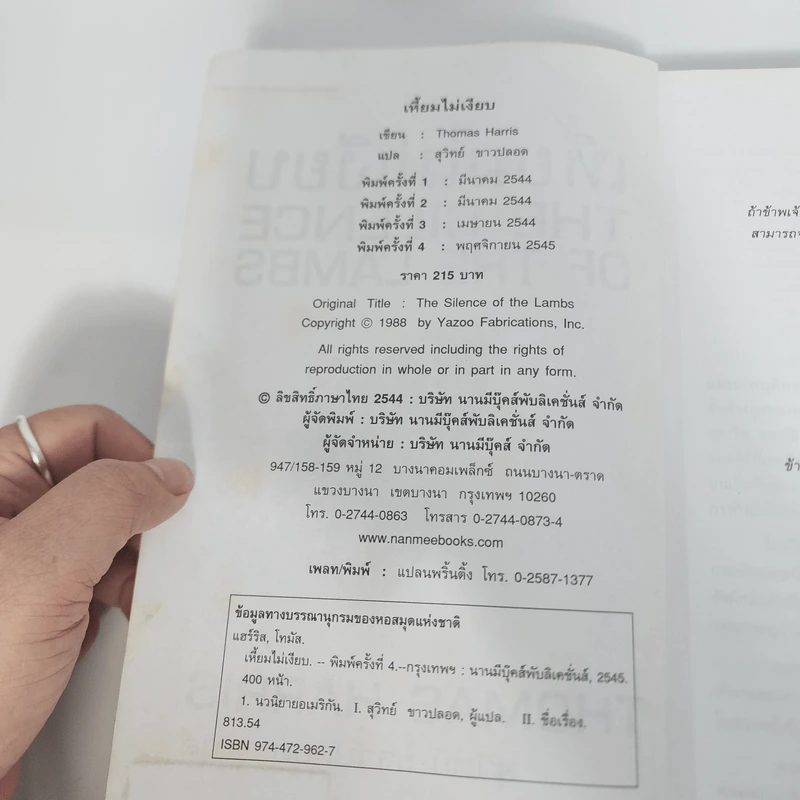 เหี้ยมไม่เงียบ
เขียน : Thomas Harris
แปล : สุวิทย์ ขาวปลอด
พิมพ์ครั้งที่ 1 : มีนาคม 2544
พิมพ์ครั้งที่ 2 : มีนาคม 2544
พิมพ์ครั้งที่ 3 : เมษายน 2544
พิมพ์ครั้งที่ 4 : พฤศจิกายน 2545
ราคา 215 บาท
Original Title : The Silence of the Lambs
Copyright © 1988 by Yazoo Fabrications, Inc.
All rights reserved including the rights of
reproduction in whole or in part in any form.
© ลิขสิทธิ์ภาษาไทย 2544 : บริษัท นานมีบุ๊คส์พับลิเคชั่นส์ จำกัด
ผู้จัดพิมพ์ : บริษัท นานมีบุ๊คส์พับลิเคชั่นส์ จำกัด
ผู้จัดจำหน่าย : บริษัท นานมีบุ๊คส์ จำกัด
947/158-159 หมู่ 12 บางนาคอมเพล็กซ์ ถนนบางนา-ตราด
แขวงบางนา เขตบางนา กรุงเทพฯ 10260
โทร. 0-2744-0863 โทรสาร 0-2744-0873-4
www.nanmeebooks.com
เพลท/พิมพ์ : แปลนพริ้นติ้ง โทร. 0-2587-1377
ข้อมูลทางบรรณานุกรมของหอสมุดแห่งชาติ
แฮร์ริส, โทมัส.
เหี้ยมไม่เงียบ. -- พิมพ์ครั้งที่ 4.--กรุงเทพฯ : นานมีบุ๊คส์พับลิเคชั่นส์, 2545.
400 หน้า.
1. นวนิยายอเมริกัน. I. สุวิทย์ ขาวปลอด, ผู้แปล. II. ชื่อเรื่อง.
813.54
ISBN 974-472-962-7
ถ้าข้าพเจ้
สามารถจ
ข้า